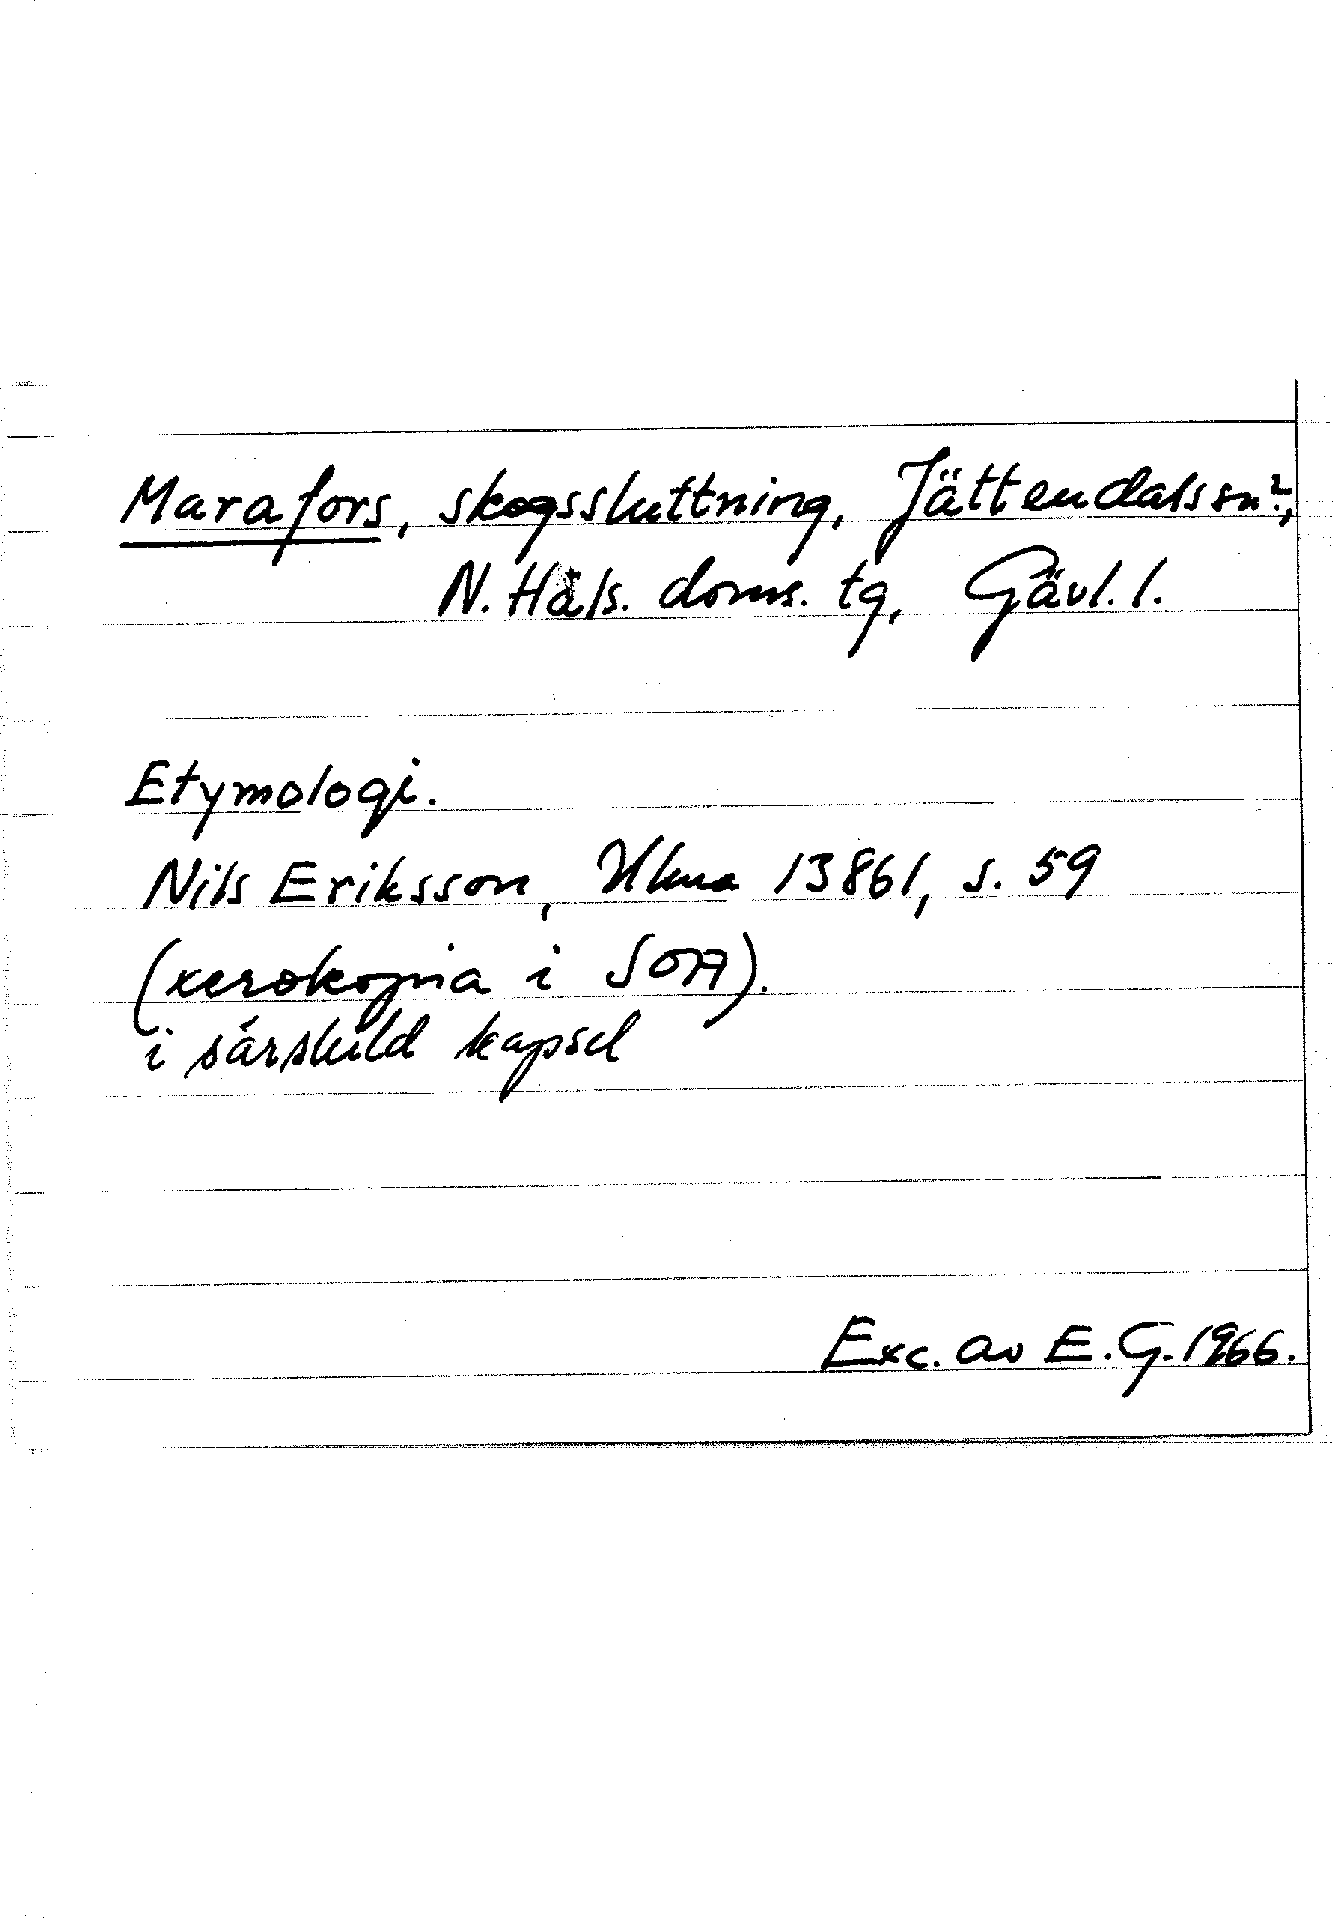 Marafors, skogssluttning, Jättendals sn?,
N. Häls. doms. tg, Gävl. l.
Etymologi.
Nils Eriksson, Ulma 13861, s. 59
(xerokopia i SOA).
i särskild kapsel
Exc. av E. G. 1966.